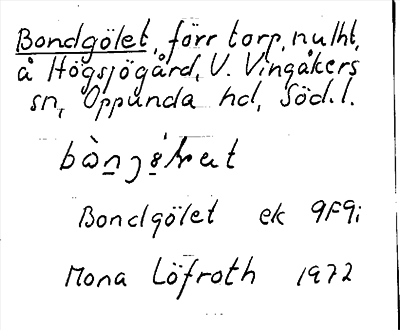 Bondgölet, förr torp, nu lht,
å Högsjögård, V. Vingåkers
sn, Oppunda hd, Söd. l.
Bondgölet ek 9F9i
Mona Löfroth 1972